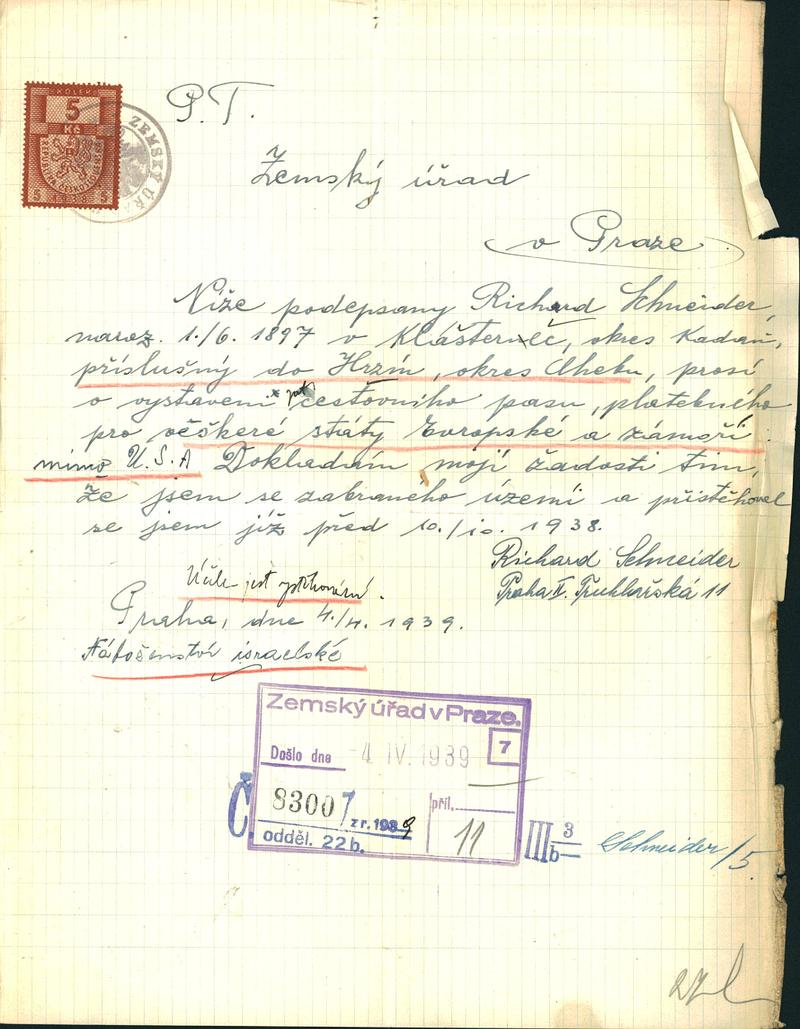 KOLEK
5
Kč
REPUBLIKA ČESKOSLOVENSKÁ
5 1938 5
ZEMSKÝ ÚŘAD
P. T.
Zemský úřad
v Praze
Níže podepsany Richard Schneider,
naroz. 1./6. 1897 v Klášterněč, okres Kadaň,
příslušný do Hrzín, okres Chebu, prosí
o vystavení cestovního pasu, platebného
pro věškeré státy Evropské a zámoří
mimo U.S.A Dokladám mojí žadosti tim,
že jsem se zabraného území a přistěhoval
se jsem již před 10./10. 1938.
Richard Schneider
Praha II. Truhlařská 11
Účel jest vystěhování.
Praha, dne 4./4. 1939.
Náboženství israelské
Zemský úřad v Praze.
7
Došlo dne -4 IV. 1939
Č. 83007 z r. 1939
příl. 11
odděl. 22b.
III 3
b
Schneider/5.